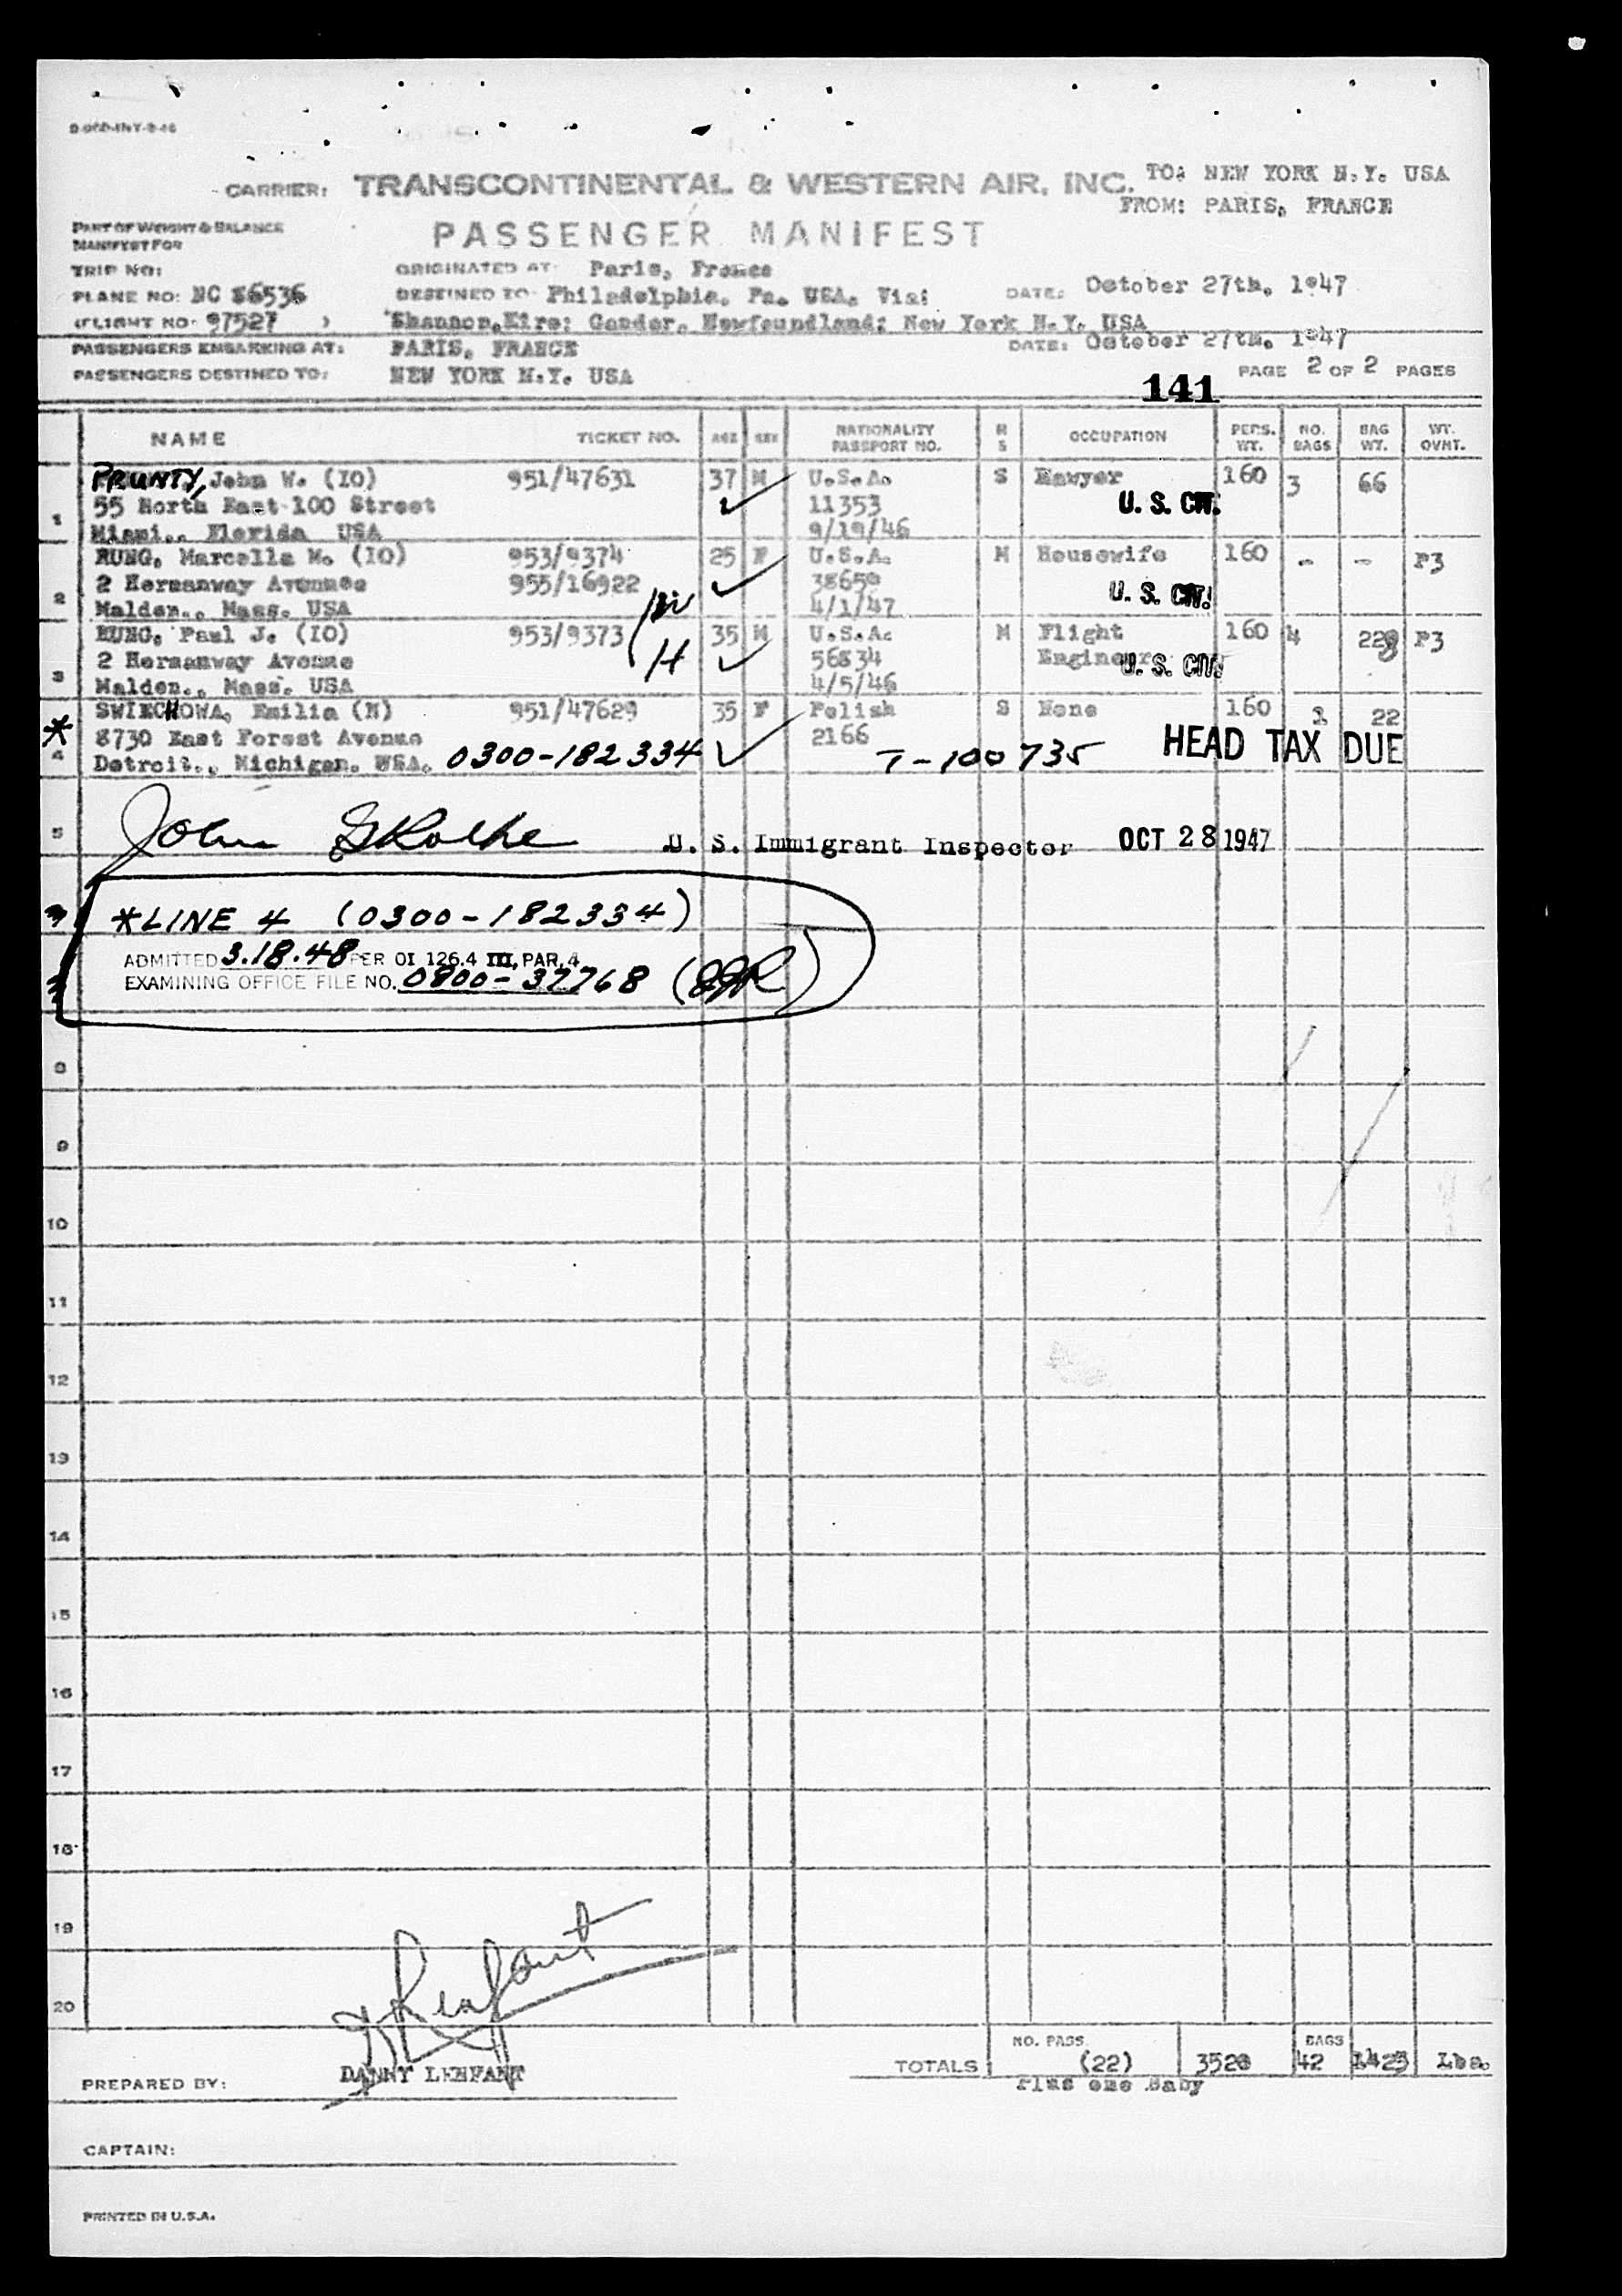 CARRIER: TRANSCONTINENTAL & WESTERN AIR, INC. TO: NEW YORK N.Y. USA
FROM: PARIS, FRANCE
PART OF WEIGHT & BALANCE
MANIFEST FOR
PASSENGER MANIFEST
TRIP NO:
ORIGINATED AT: Paris, France
PLANE NO: NC 86536
DESTINED TO: Philadelphia, Pa. USA. Via: DATE: October 27th. 1947
(FLIGHT NO. 97527 )
Shannon,Eire; Gander, Newfoundland; New York N.Y. USA
PASSENGERS EMBARKING AT: PARIS, FRANCE DATE: October 27th. 1947
PASSENGERS DESTINED TO: NEW YORK N.Y. USA PAGE 2 OF 2 PAGES
141
NAME TICKET NO. AGE SEX NATIONALITY PASSPORT NO. M S OCCUPATION PERS. WT. NO. BAGS BAG WT. WT. OVHT.
PRUNTY, John W. (IO) 951/47631 37 M U.S.A. S Lawyer 160 3 66
55 North East 100 Street 11353 U. S. CIT.
1 Miami., Florida USA 9/19/46
RUNG, Marcella M. (IO) 953/9374 25 F U.S.A. M Housewife 160 - - P3
2 Hermanway Avenue 955/16922 38650 U. S. CIT.
2 Malden., Mass. USA 4/1/47
W
RUNG, Paul J. (IO) 953/9373 35 M U.S.A. M Flight 160 4 228 P3
2 Hermanway Avenue H 56834 Engineer U. S. CIT.
3 Malden., Mass. USA 4/5/46
SWIECHOWA, Emilia (N) 951/47629 35 F Polish S None 160 1 22
* 8730 East Forest Avenue 2166 HEAD TAX DUE
4 Detroit., Michigan. USA. 0300-182334 T-100735
5 John U. S. Immigrant Inspector OCT 28 1947
*LINE 4 (0300-182334)
ADMITTED 3.18.48 PER OI 126.4 III, PAR. 4
EXAMINING OFFICE FILE NO. 0800-37768
8
9
10
11
12
13
14
15
16
17
18
19
20
NO. PASS. BAGS
TOTALS (22) 3520 42 1425 Lbs.
Plus one Baby
PREPARED BY: DANNY LENFANT
CAPTAIN:
PRINTED IN U.S.A.